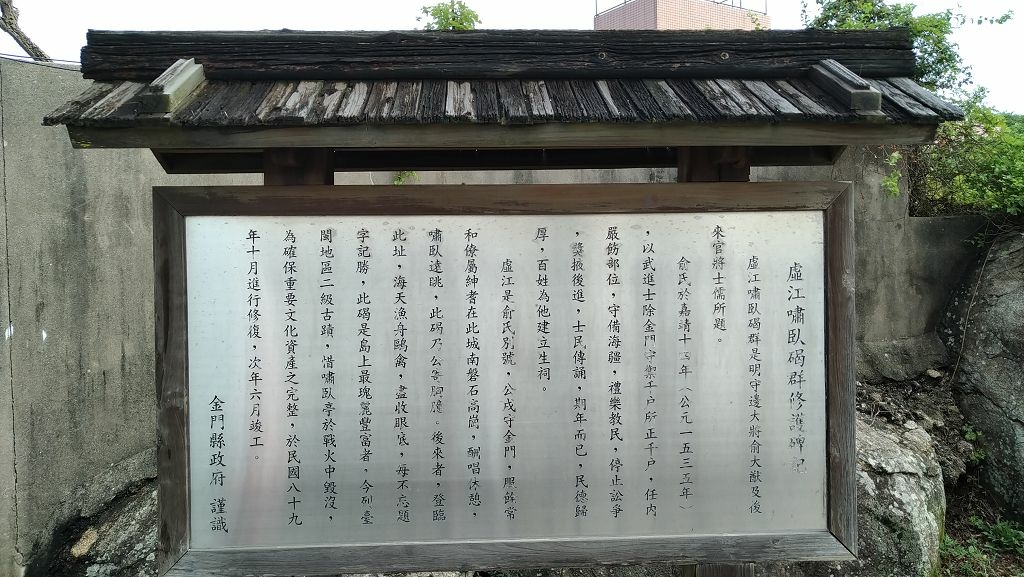 虛江嘯臥碣群修護碑記
虛江嘯臥碣群是明守邊大將俞大猷及後
來官將士儒所題。
俞氏於嘉靖十四年（公元一五三五年）
，以武進士除金門守禦千戶所正千戶，任內
嚴飭部位，守備海疆，禮樂教民，停止訟爭
，獎掖後進，士民傳誦，期年而已，民德歸
厚，百姓為他建立生祠。
虛江是俞氏別號，公戍守金門，暇餘常
和僚屬紳耆在此城南磐石高崗，酬唱休憩，
嘯臥遠眺，此碣乃公寄胸臆。後來者，登臨
此址，海天漁舟鷗禽，盡收眼底，每不忘題
字記勝，此碣是島上最瑰麗豐富者，今列臺
閩地區二級古蹟，惜嘯臥亭於戰火中毀沒，
為確保重要文化資產之完整，於民國八十九
年十月進行修復，次年六月竣工。
金門縣政府 謹識